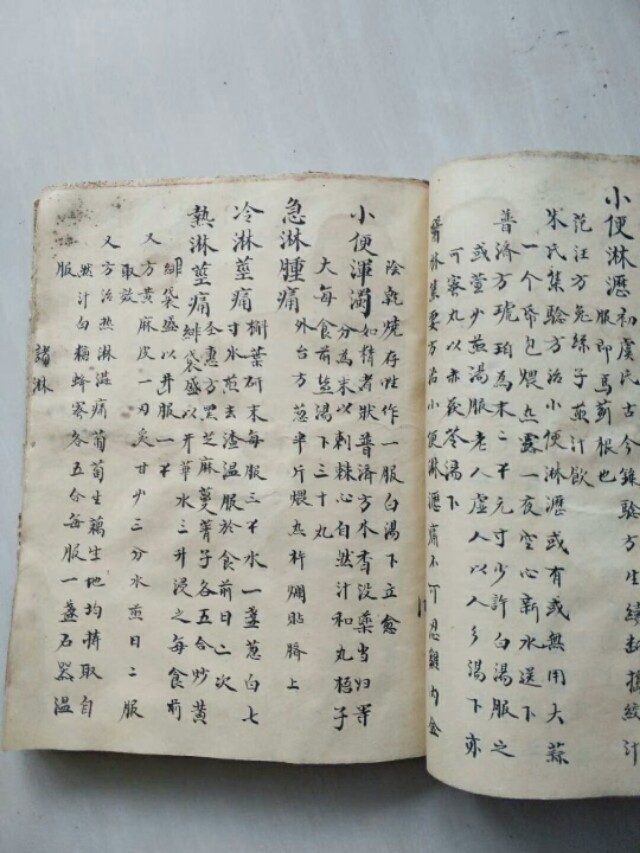 小便淋瀝初虞氏古今錄驗方生續斷搗絞汁
服即馬薊根也
范汪方兔絲子煎汁飲
朱氏集驗方治小便淋瀝或有或無用大蒜
一个帋包煨熟露一夜空心新水送下
普濟方琥珀為末二不元寸少許白湯服之
或萱少煎湯服老人虛人以人參湯下亦
可蜜丸以赤茯苓湯下
醫林集要方治小便淋瀝痛不可忍雞內金
陰乾燒存性作一服白湯下立愈
小便渾濁如精者狀普濟方木香沒藥當归等
分為末以刺棘心自然汁和丸梧子
大每食前盐湯下三十丸
急淋腫痛外台方葱半斤煨熟杵爛貼臍上
冷淋莖痛槲葉研末每服三不水一盞葱白七
寸水煎去渣溫服於食前日二次
熱淋莖痛全惠方黑芝麻蔓菁子各五合炒黃
緋袋盛以井華水三升浸之每食前
緋袋盛以井服一不
又方黃麻皮一刃炙甘少三分水煎日二服
取效
又方治热淋澁痛葡萄生藕生地均擠取自
然汁白䊗蜂蜜各五合每服一盞石器溫
服
諸淋